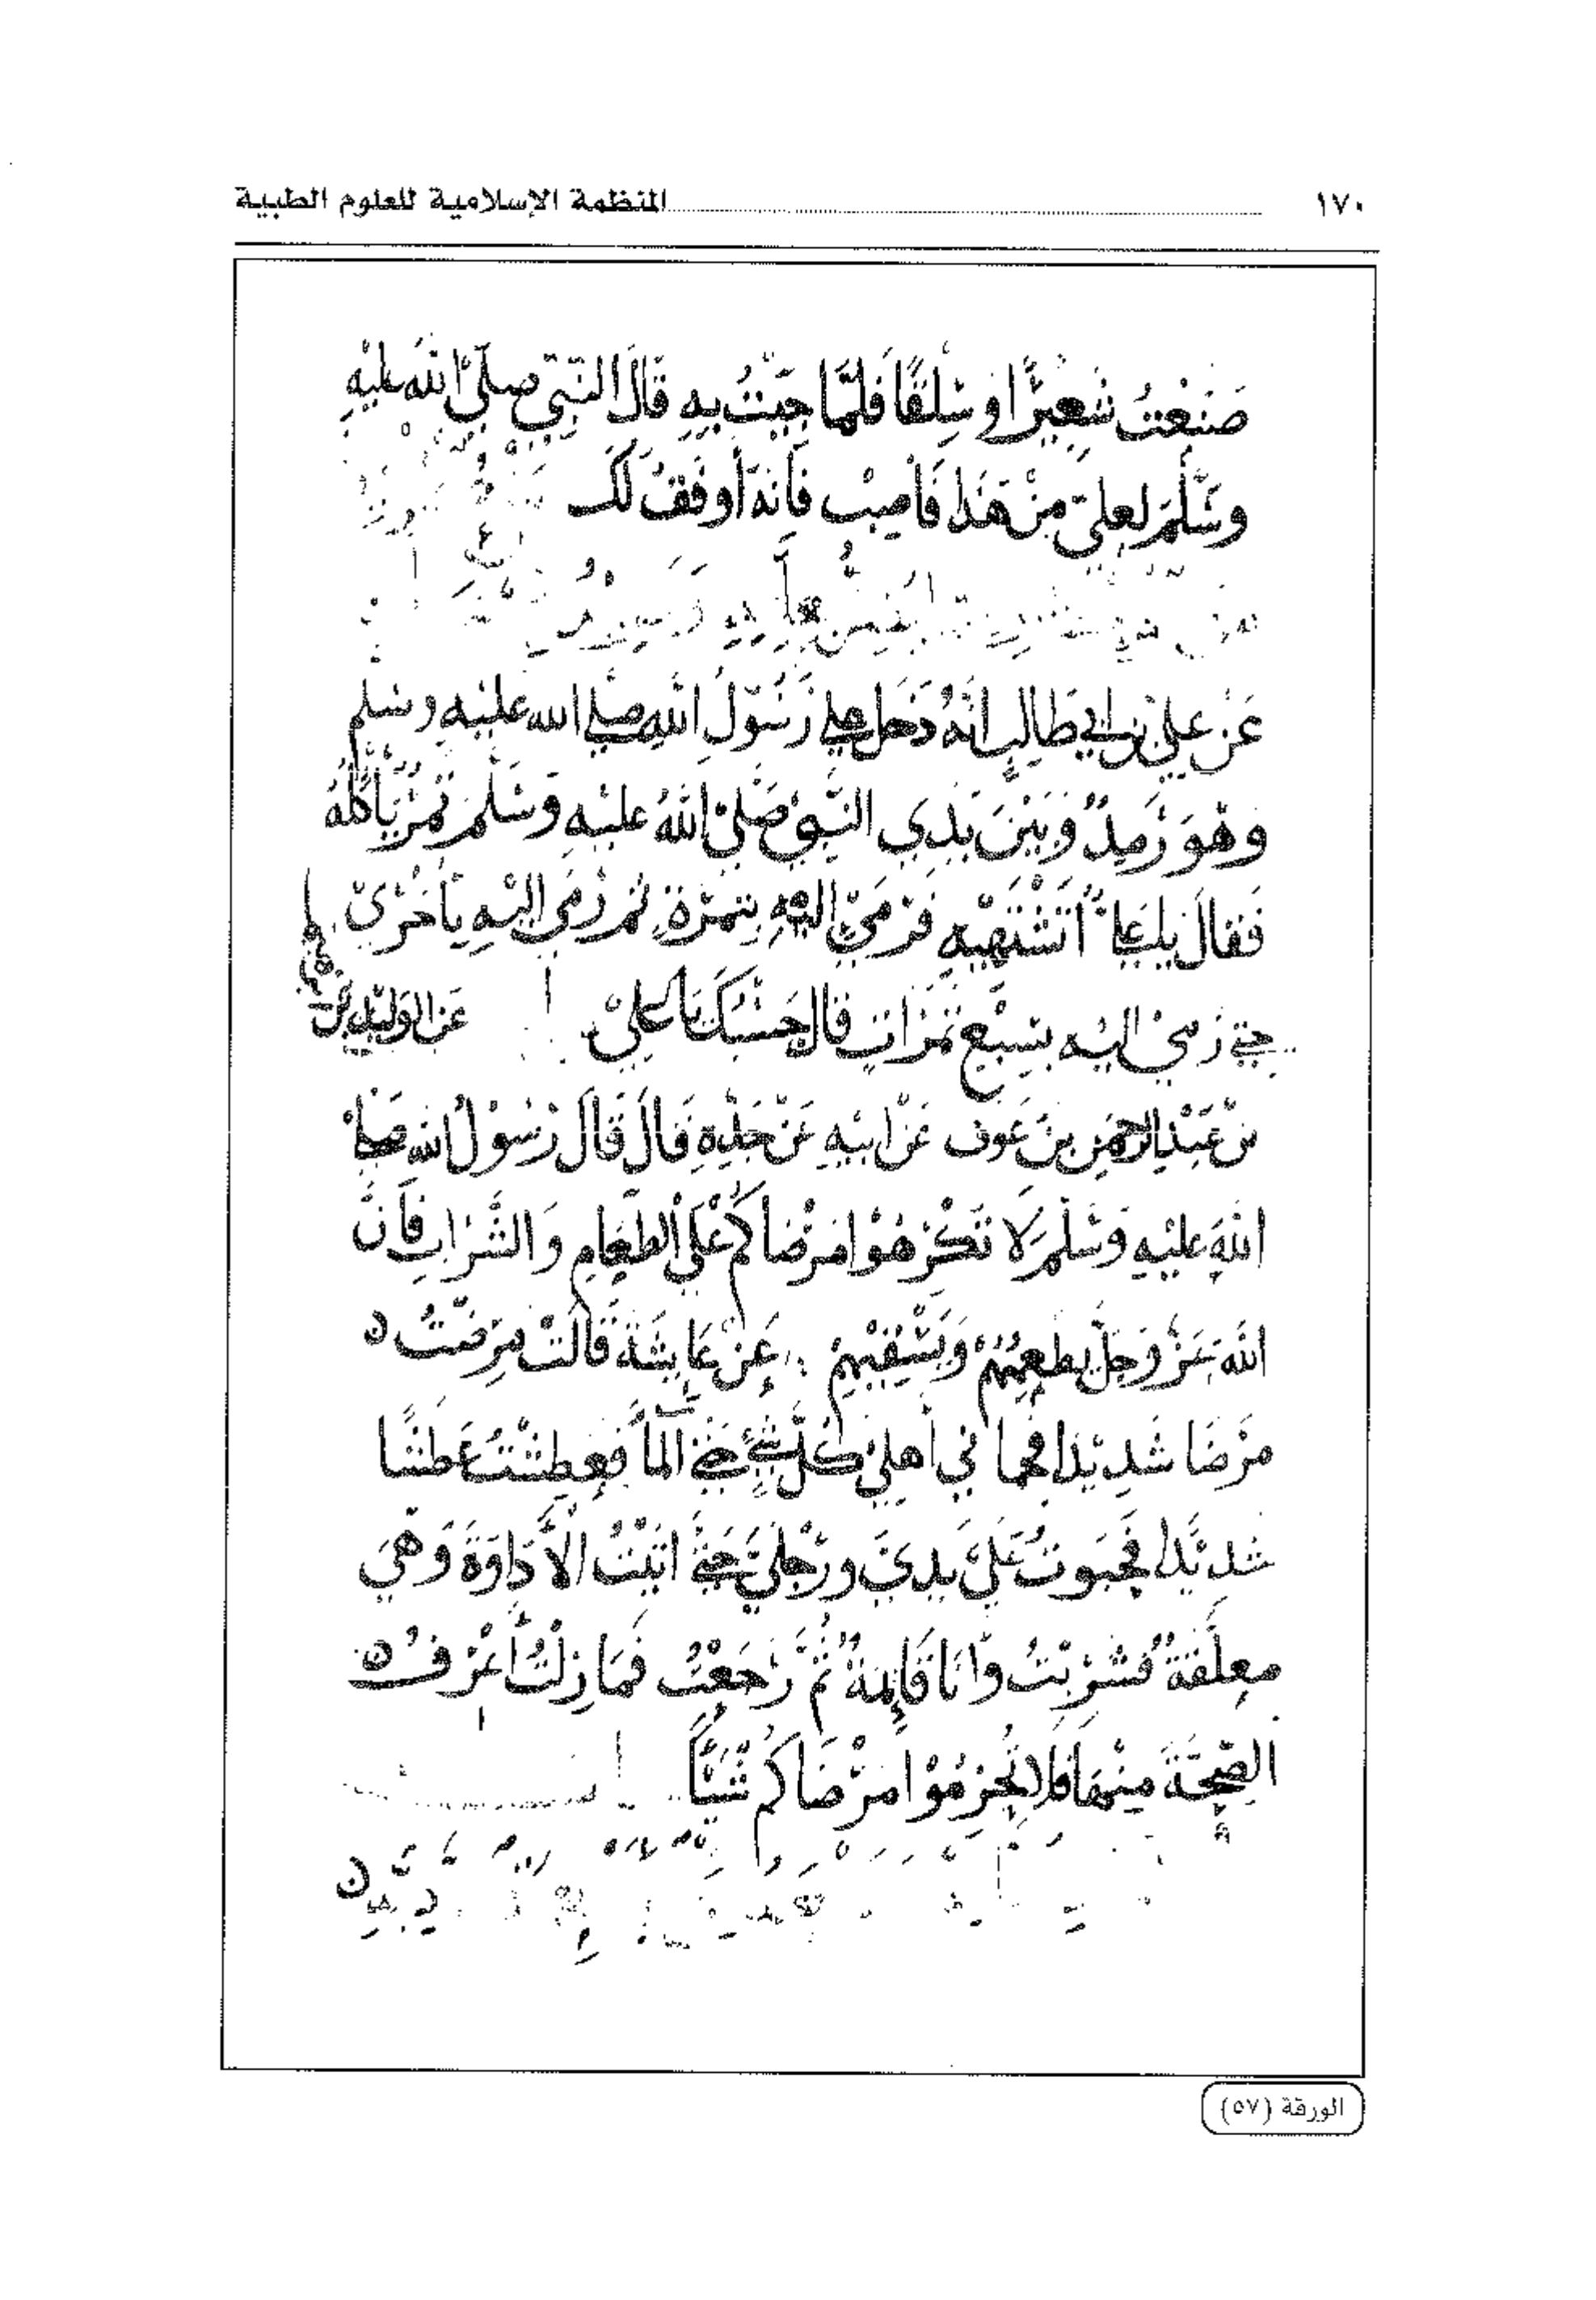 ١٧٠ المنظمة الإسلامية للعلوم الطبية
صَنَعْتُ شَعِيرًا وسِلْقًا فَلمَّا جَيْتُ بِهِ قَالَ النَّبِيّ صلّى اللّه عليْهِ
وسَّلمَ لعلِىّ مِنْ هَذا فَأَصِبْ فَإنهَ أوفَقُ لَكَ
عَنْ علِىّ بن ابِي طَالِبٍ انَّهُ دَخَل على رَسُوّلِ اللَّهِ صلى الله عليْهِ وسلم
وَهْوَ رَمِدٌ وَبَيْنَ يَدِي النَّبِيّ صَلّىْ اللّهُ عليْهِ وَسَلّمَ تَمْرٌ يَأكُلُهُ
فَقَالَ يا عَلىُّ أَتَشْتَهِيْهِ فَرَمَىّ اليْهِ بِتَمْرَةٍ ثم رَمَي اليْهِ بأُخْرَيّ
حتى رَمَىْ اليْه بسَبْعِ تَمَرَاتٍ قالَ حَسْبُكَ يَا علِىّ عَن الوَليْدِ بْن
بْنِ عَبْد الرحْمَنِ بنْ عَوف عَنْ ابيْهِ عَنْ جَدِّهِ قَالَ قَالَ رَسُوْلُ اللّه صَلىْ
اللّهُ عليْهِ وَسَلّمَ لَا تَكْرَهُوْا مَرْضَاكُمْ عْلَى الطَّعَامِ وَالشَّرَابِ فَانَّ
اللّهَ عَزَّ وَجلّ يطعِمُهُمْ وَيَسْقِيْهِمْ عَنْ عَايشَةَ قَالَتْ مَرِضْتُ
مَرَضًا شَدِيْدًا فحمانى أهلِىْ كلَّ شَيْءٍ حَتى المآء فعطِشْتُ عَطشًا
شديْدًا فَحَبَوتُ عَلَىَّ يديَّ ورِجْلىَّ حَتىَّ اتيْتُ الْأَدَاوَةَ وَهْيَ
معلّقَةٌ فشرِبْتُ وَّانَا قَايمَةٌ ثُمَّ رَجَعْتُ فَمَا زِلْتُ أَعْرَفُ
الصِّحَّةَ مِنْهَا فَلا تَحْرمُوْا مَرْضَاكُمْ شَيْئًا
الورقة (٥٧)